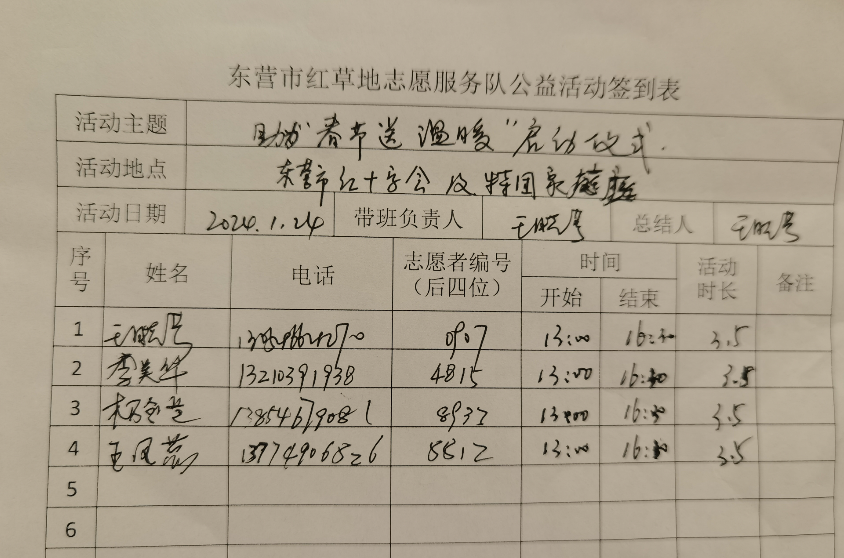 东营市红草地志愿服务队公益活动签到表
活动主题 助力"春节送温暖"启动仪式.
活动地点 东营市红十字会及特困家庭
活动日期 2024.1.24 带班负责人 王晓 总结人 王晓
序号 姓名 电话 志愿者编号（后四位） 时间 活动时长 备注
开始 结束
1 王晓 0907 13:00 16:30 3.5
2 李美 13210391938 4815 13:00 16:30 3.5
3 杨 13854679081 8932 13:00 16:30 3.5
4 王凤 13774906826 5512 13:00 16:30 3.5
5
6